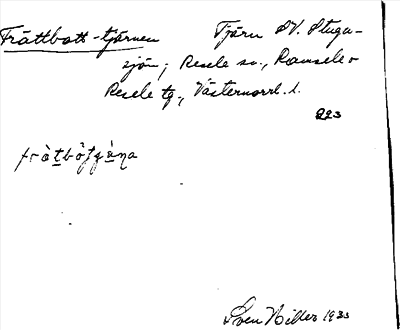 Fråttbott-tjärnen Tjärn SV. Stuga-
sjön; Resele sn., Ramsele o
Resele tg., Västernorrl. l.
223
Sven Hiller 1933